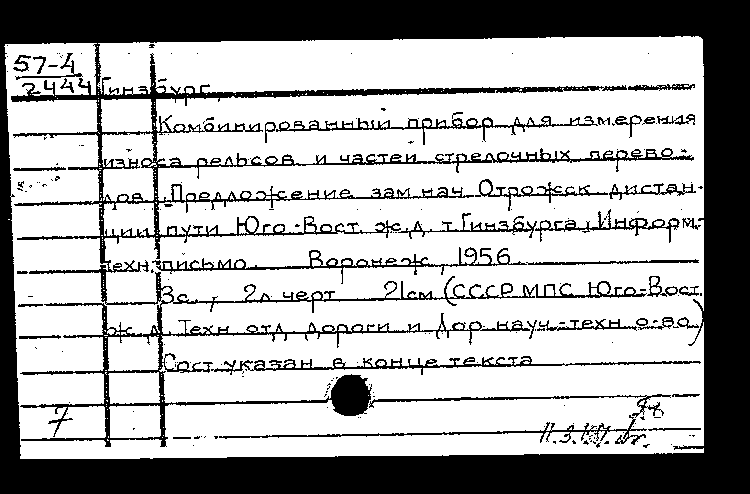 57-4
2444 Гинзбург,
Комбинированный прибор для измерения
износа рельсов и частей стрелочных перево-
дов. Предложение зам нач Отрожск дистан-
ции пути Юго-Вост. ж.д. т. Гинзбурга, Информ.-
техн. письмо. Воронеж, 1956.
3с., 2л черт 21см (СССР МПС Юго-Вост
ж.д. Техн отд дороги и Дор науч.-техн о-во)
Сост указан в конце текста
7